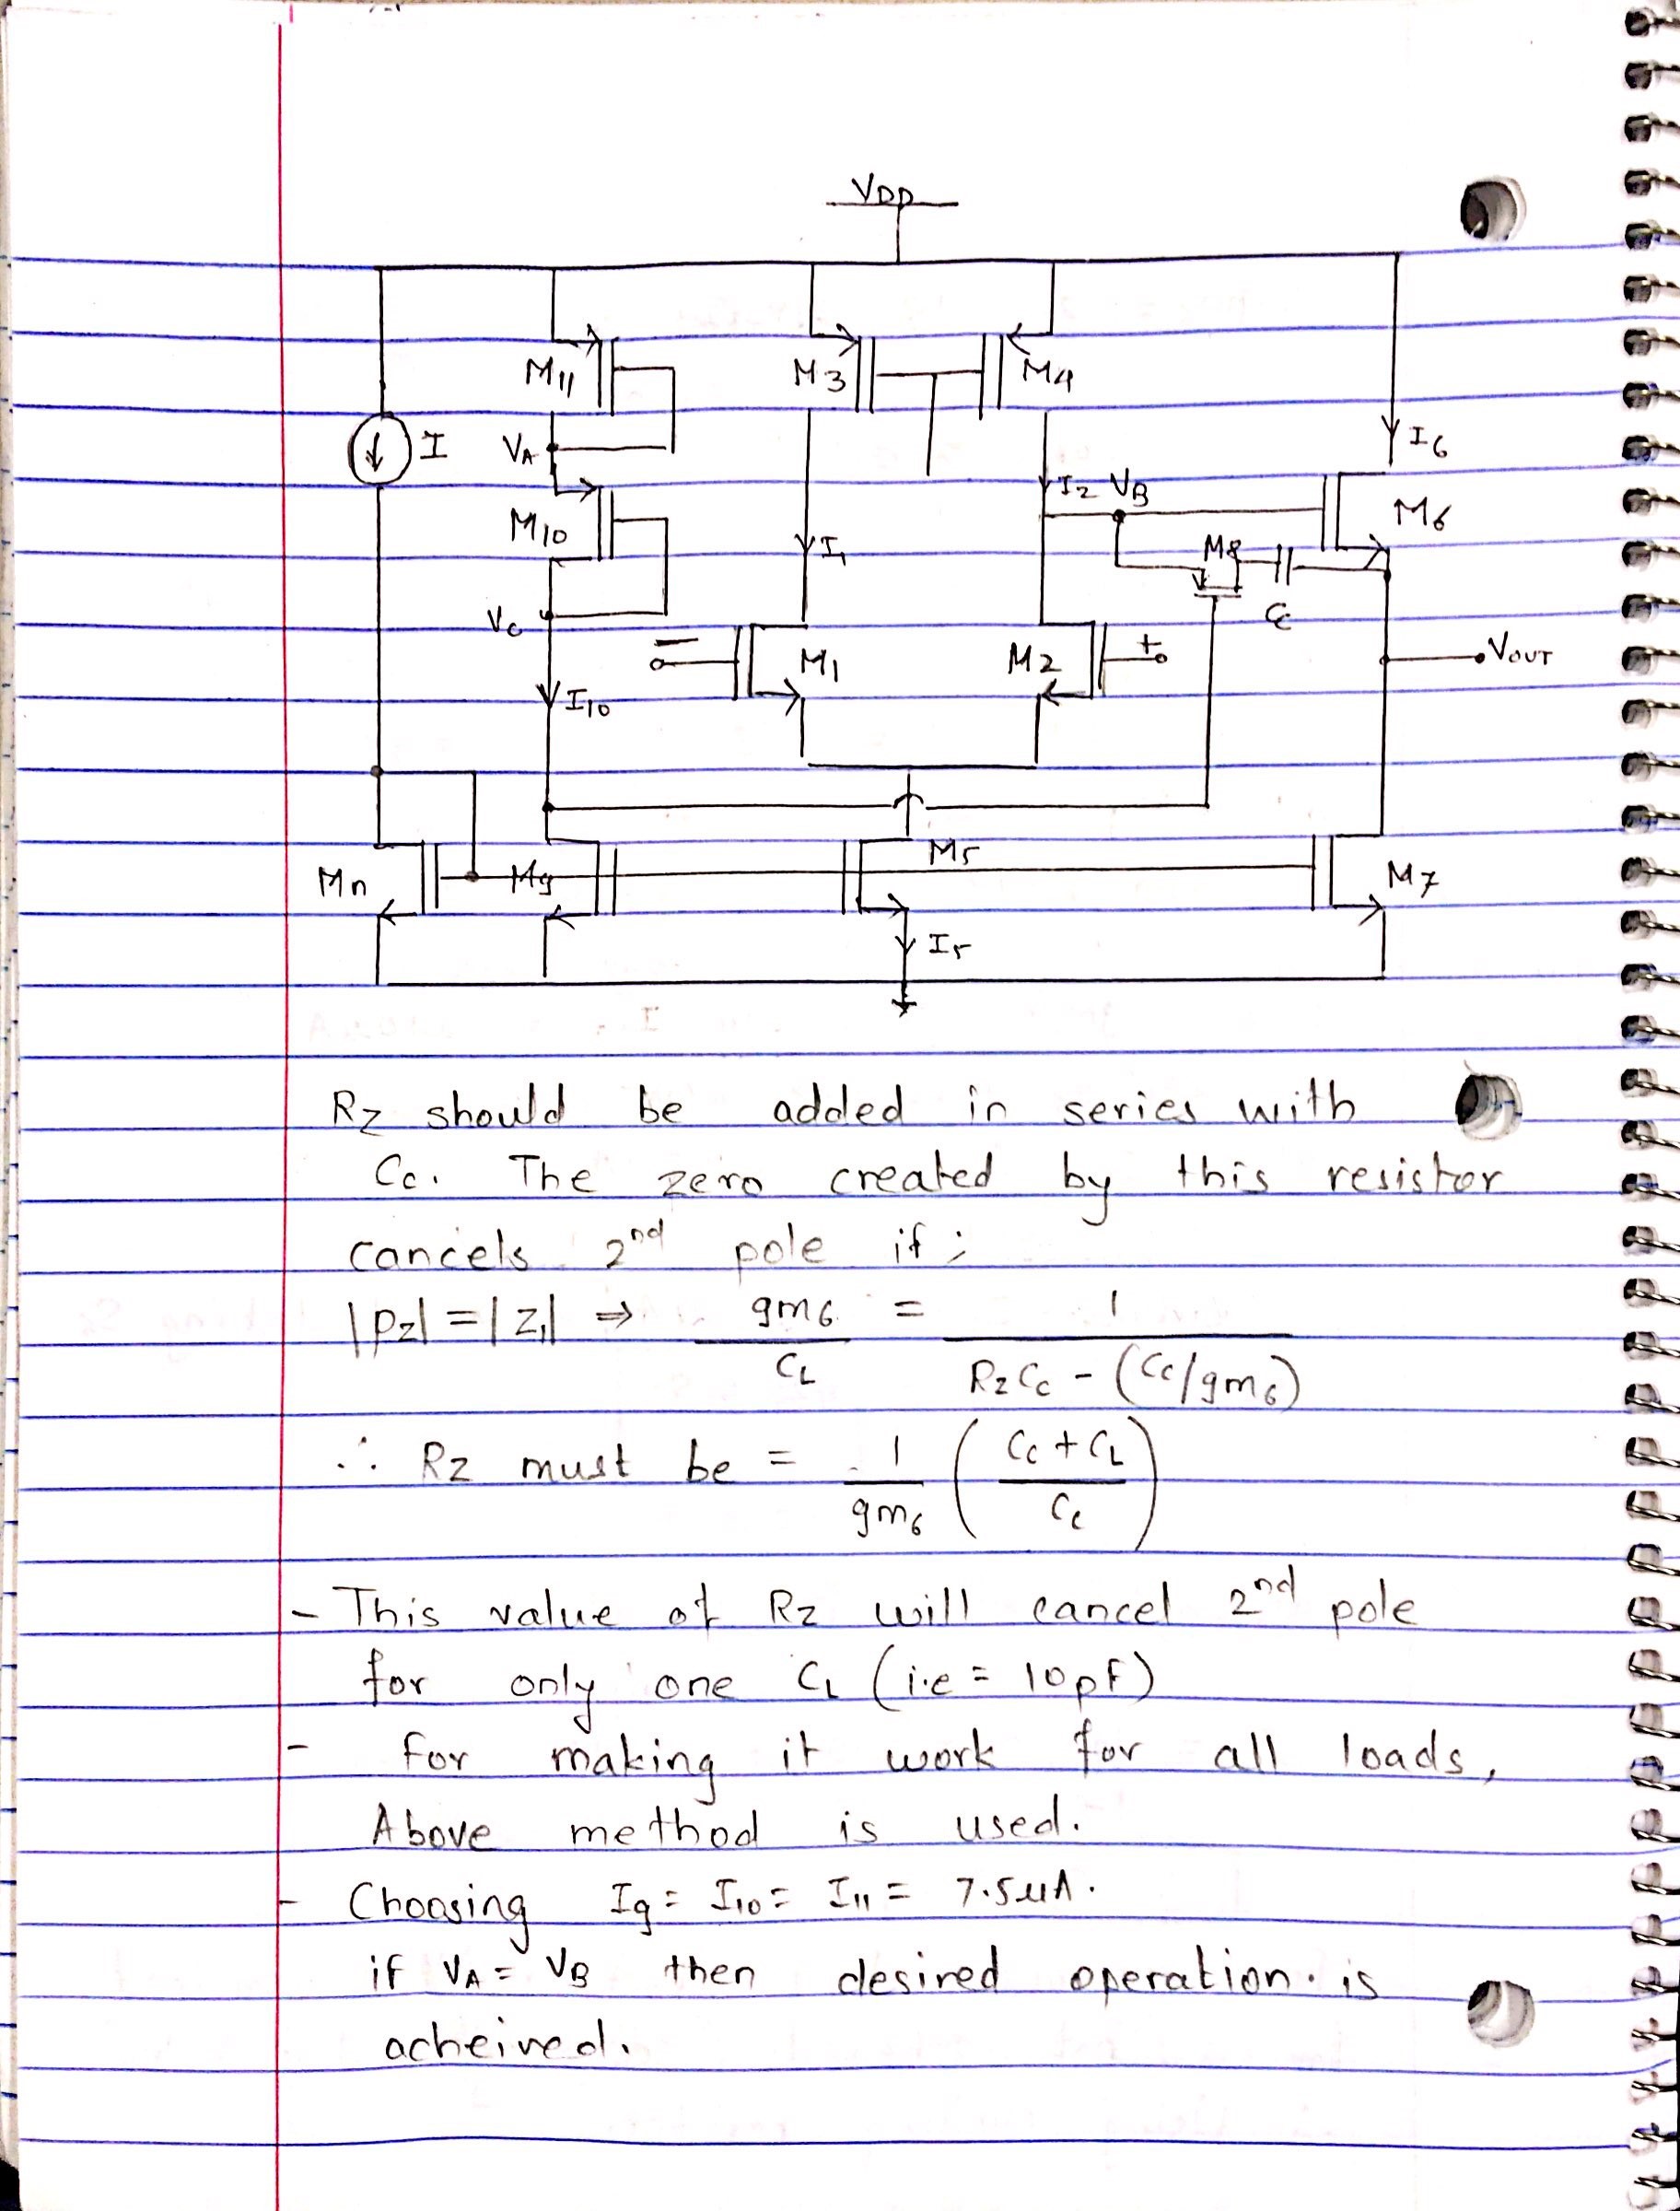 VDD
M11
M3
M4
I
VA
I6
I2 VB
M10
M6
M8
I1
Cc
Vc
−
M1
M2
+
VOUT
I10
M5
Mn
M9
M7
I5
Rz should be added in series with
Cc. The zero created by this resistor
cancels 2nd pole if ;
|p2| = |z1| ⇒ gm6 / CL = 1 / RzCc - (Cc/gm6)
∴ Rz must be = 1/gm6 ( Cc + CL / Cc )
- This value of Rz will cancel 2nd pole
for only one CL (i.e = 10pF)
- For making it work for all loads,
Above method is used.
- Choosing I9 = I10 = I11 = 7.5uA.
if VA = VB then desired operation is
acheived.